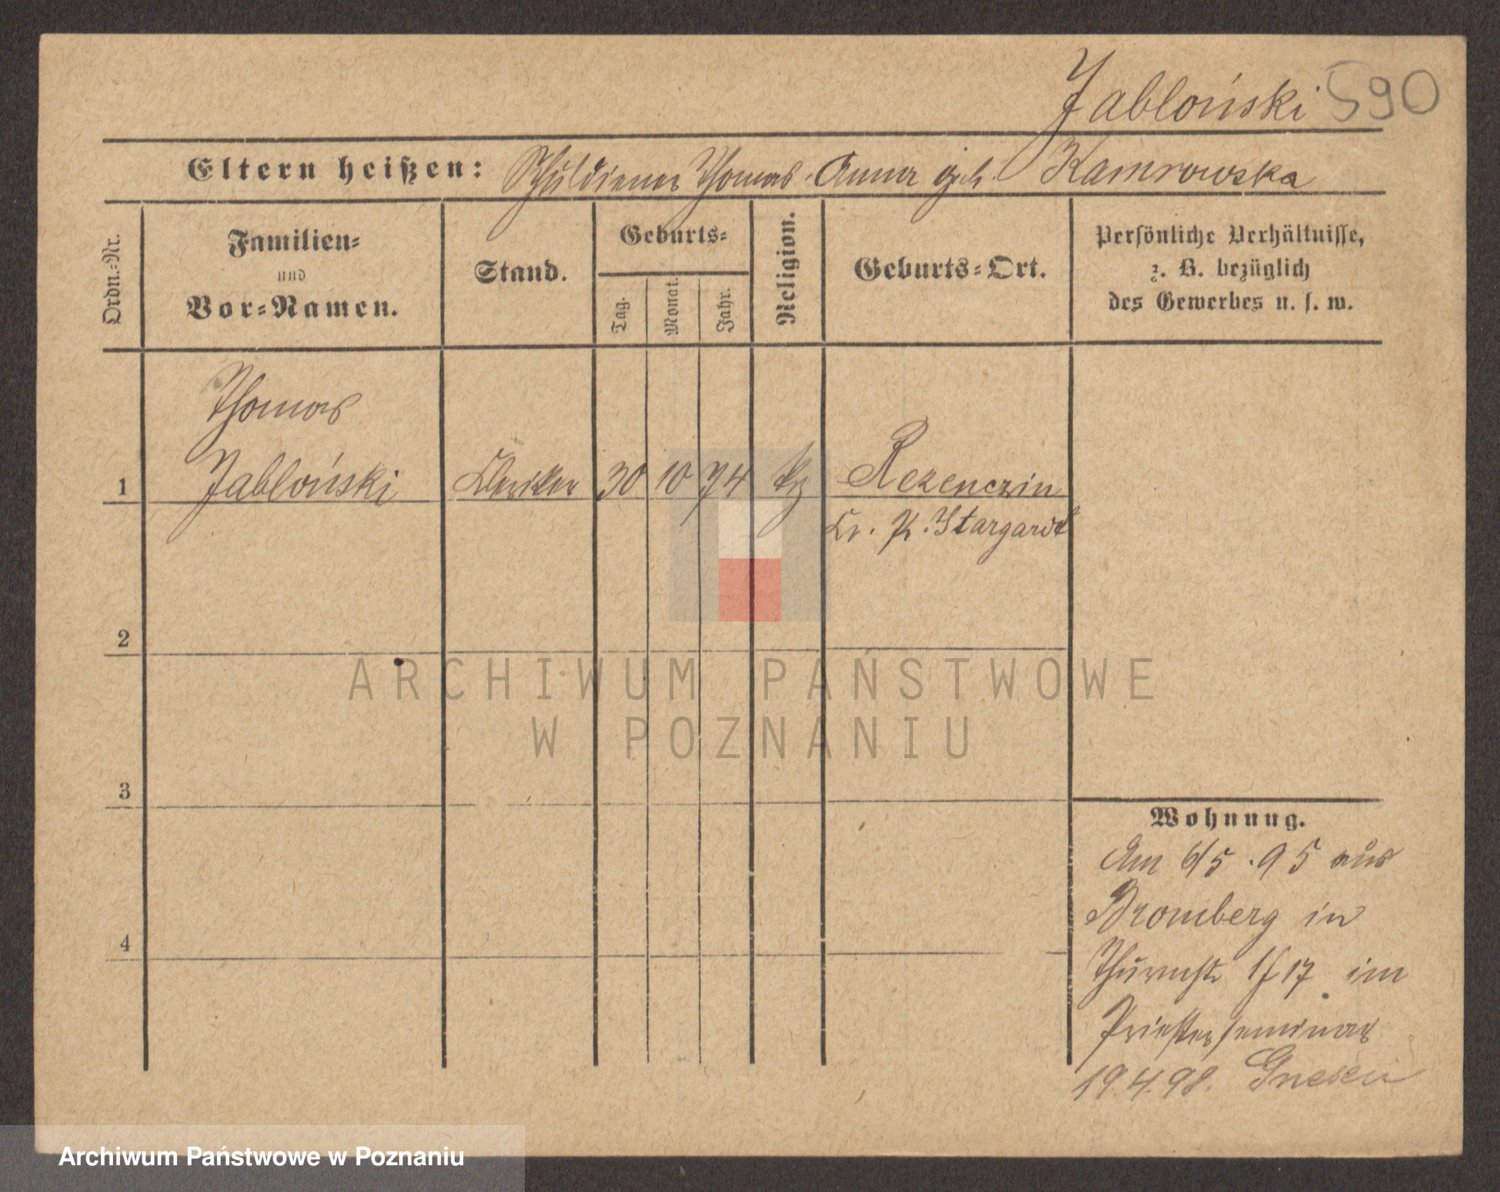 Jabłoński 590
Eltern heißen: Schuldiener Thomas. Anna geb. Kamrowska
Ordn.=Nr.
Familien=
und
Vor=Namen.
Stand.
Geburts=
Tag.
Monat.
Jahr.
Religion.
Geburts=Ort.
Persönliche Verhältnisse,
z. B. bezüglich
des Gewerbes u. s. w.
Thomas
1 Jabłoński Kleriker 30 10 74 Rezenczin
Kr. Pr. Stargardt
2
3
4
Wohnung.
Am 6/5. 95 aus
Bromberg in
Thurmstr 17 im
Priesterseminar
19.4.98. Gnesen
ARCHIWUM PAŃSTWOWE
W POZNANIU
Archiwum Państwowe w Poznaniu